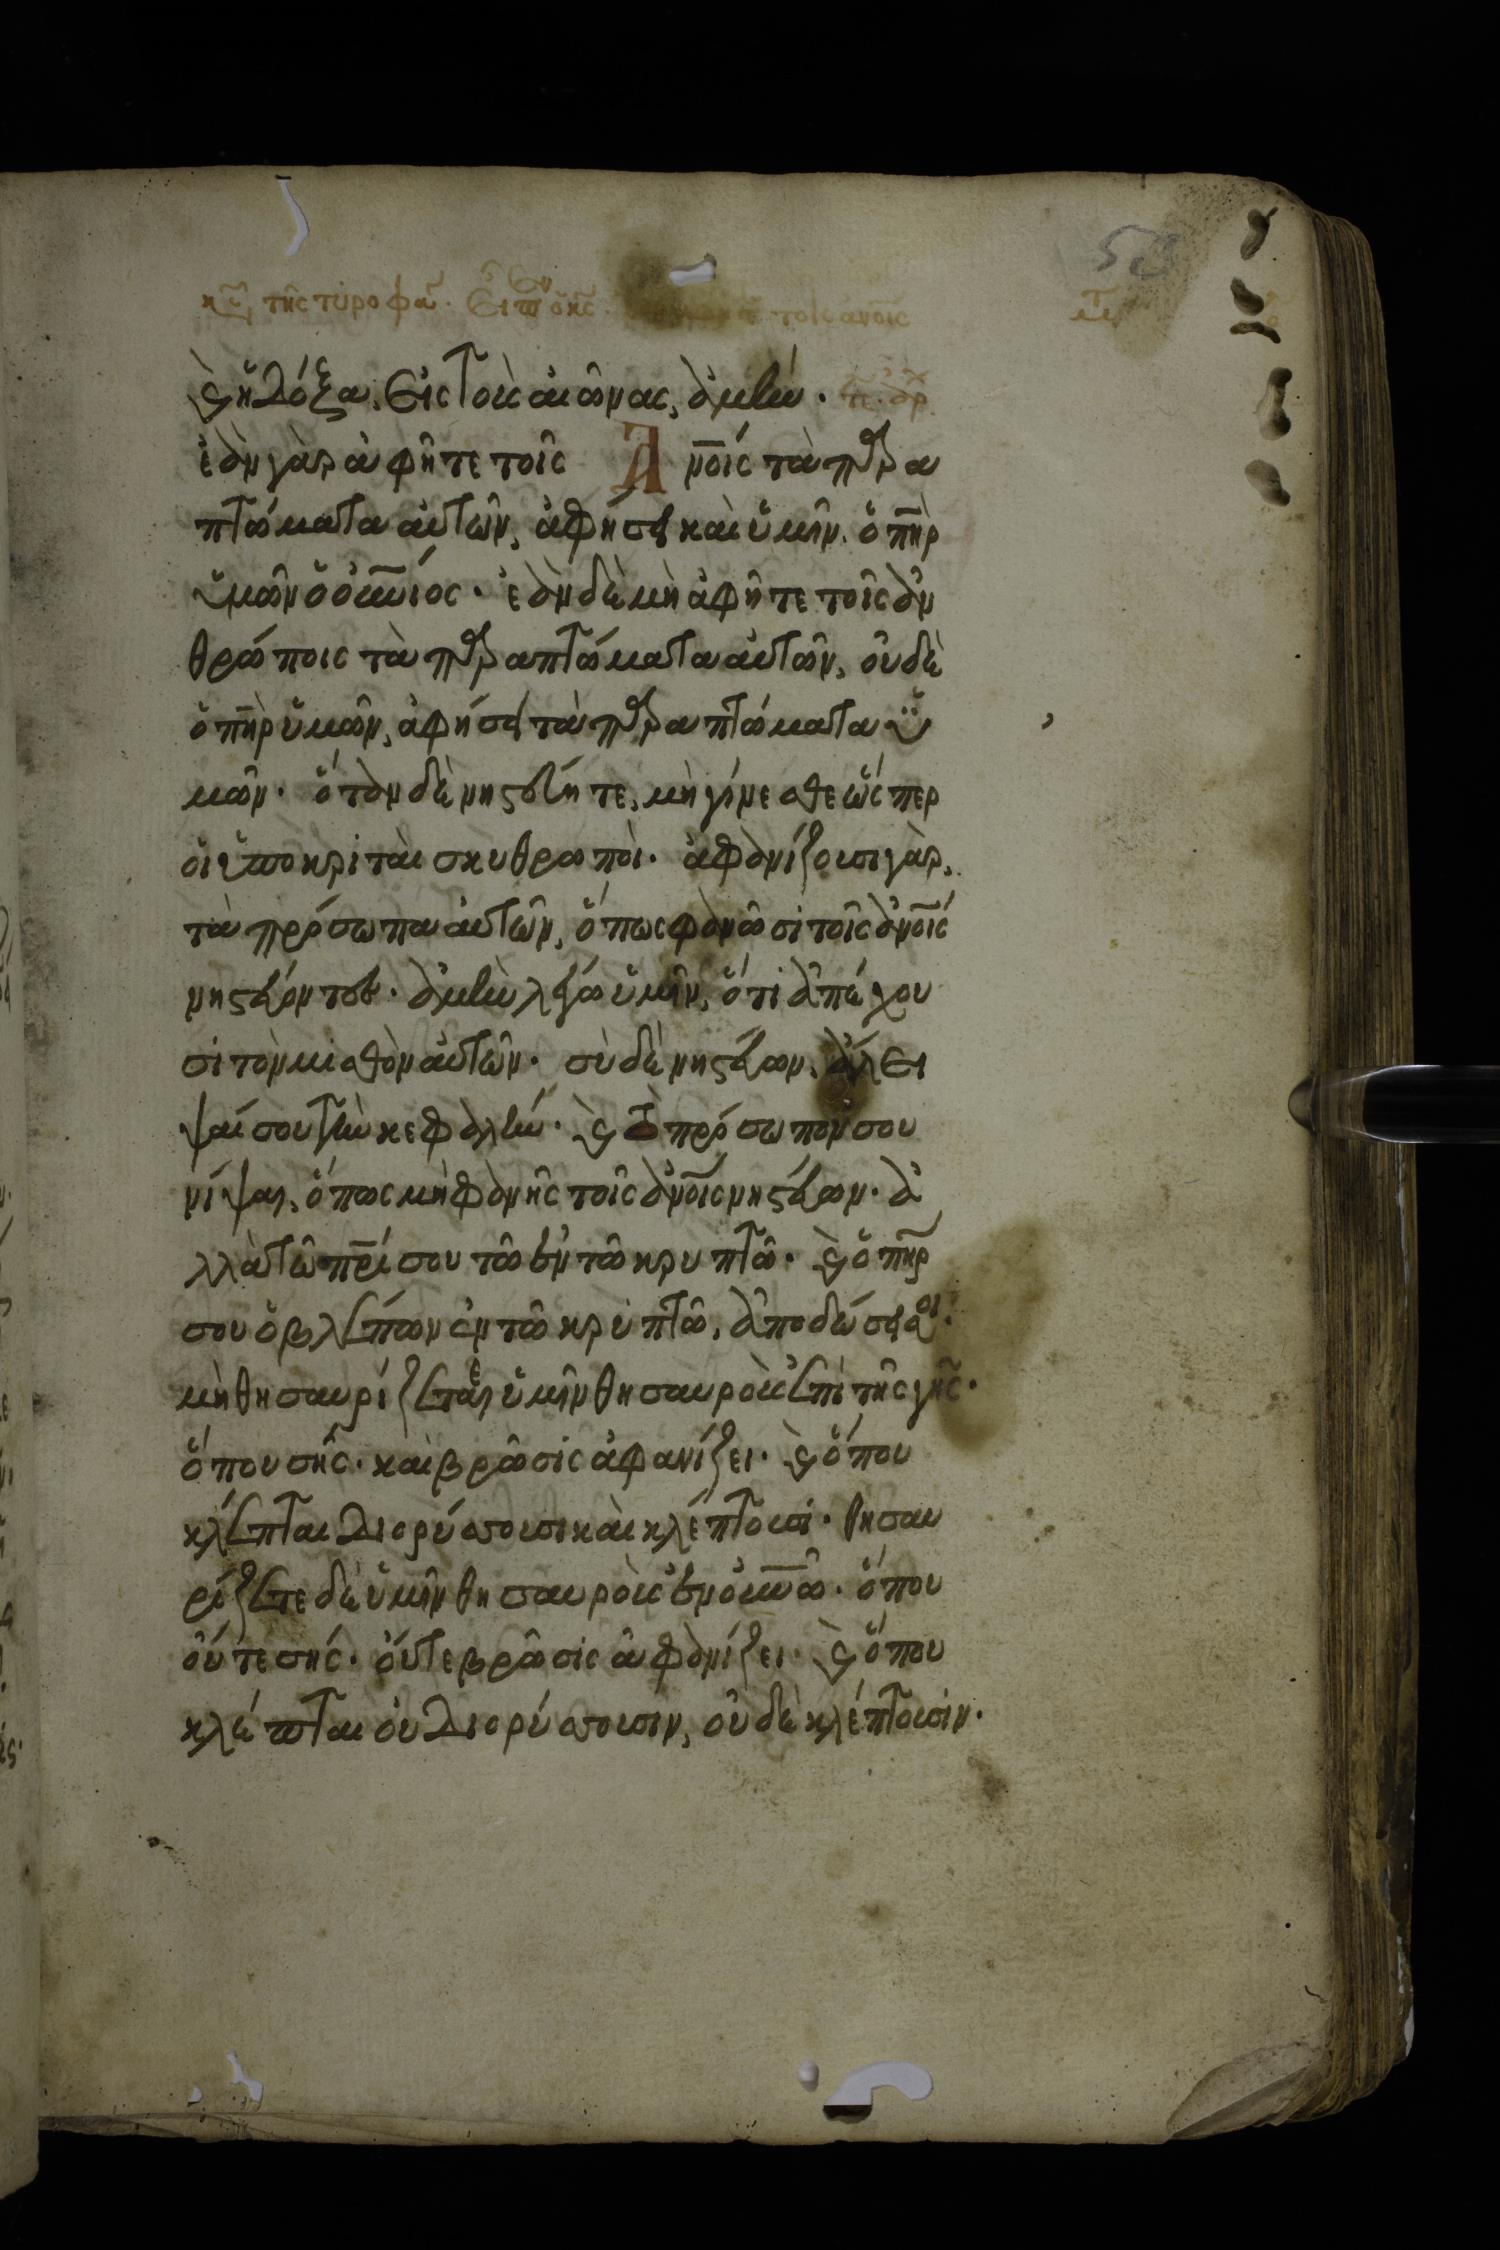 κυ τῆς τυροφα. εἶπεν ὁ κς. τοῖς ἀνοις
50
καὶ ἡ δόξα, εἰς τοὺς αἰῶνας, ἀμήν.
ἐὰν γὰρ ἀφῆτε τοῖς Ἀνοις τὰ παρα
πτώματα αὐτῶν, ἀφήσει καὶ ὑμῖν. ὁ πηρ
ὑμῶν ὁ οὐνιος. ἐὰν δὲ μὴ ἀφῆτε τοῖς ἀν
θρώποις τὰ παραπτώματα αὐτῶν, οὐδὲ
ὁ πηρ ὑμῶν, ἀφήσει τὰ παραπτώματα ὑ
μῶν. ὅταν δὲ νηστεύητε, μὴ γίνεσθε ὥσπερ
οἱ ὑποκριταὶ σκυθρωποί. ἀφανίζουσι γὰρ,
τὰ πρόσωπα αὐτῶν, ὅπως φανῶσι τοῖς ἀνοις
νηστεύοντες. ἀμὴν λέγω ὑμῖν, ὅτι ἀπέχου
σι τὸν μισθὸν αὐτῶν. σὺ δὲ νηστεύων, ἄλει
ψαί σου τὴν κεφαλήν. καὶ τὸ πρόσωπον σου
νίψαι, ὅπως μὴ φανῆς τοῖς ἀνοις νηστεύων. ἀ
λλὰ τῶ πρι σου τῶ ἐν τῶ κρυπτῶ. καὶ ὁ πηρ
σου ὁ βλέπων ἐν τῶ κρυπτῶ, ἀποδώσει σοι.
μὴ θησαυρίζεται ὑμῖν θησαυροὺς ἐπὶ τῆς γῆς.
ὅπου σὴς. καὶ βρῶσις ἀφανίζει. καὶ ὅπου
κλέπται διορύσσουσι καὶ κλέπτουσι. θησαυ
ρίζετε δὲ ὑμῖν θησαυροὺς ἐν οὐνω. ὅπου
οὔτε σής. οὔτε βρῶσις ἀφανίζει. καὶ ὅπου
κλέπται οὐ διορύσσουσιν, οὐδὲ κλέπτουσιν.